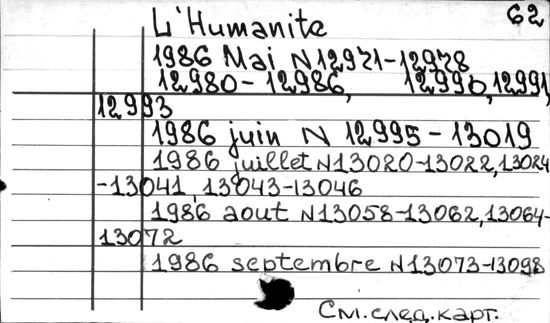 62
L'Humanite
1986 Mai N12971-12978
12980-12986, 12990, 12991,
12993
1986 juin N 12995-13019
1986 juillet N13020-13022, 13024
-13041, 13043-13046
1986 aout N13058-13062, 13064-
13072
1986 septembre N13073-13098
См. след. карт.